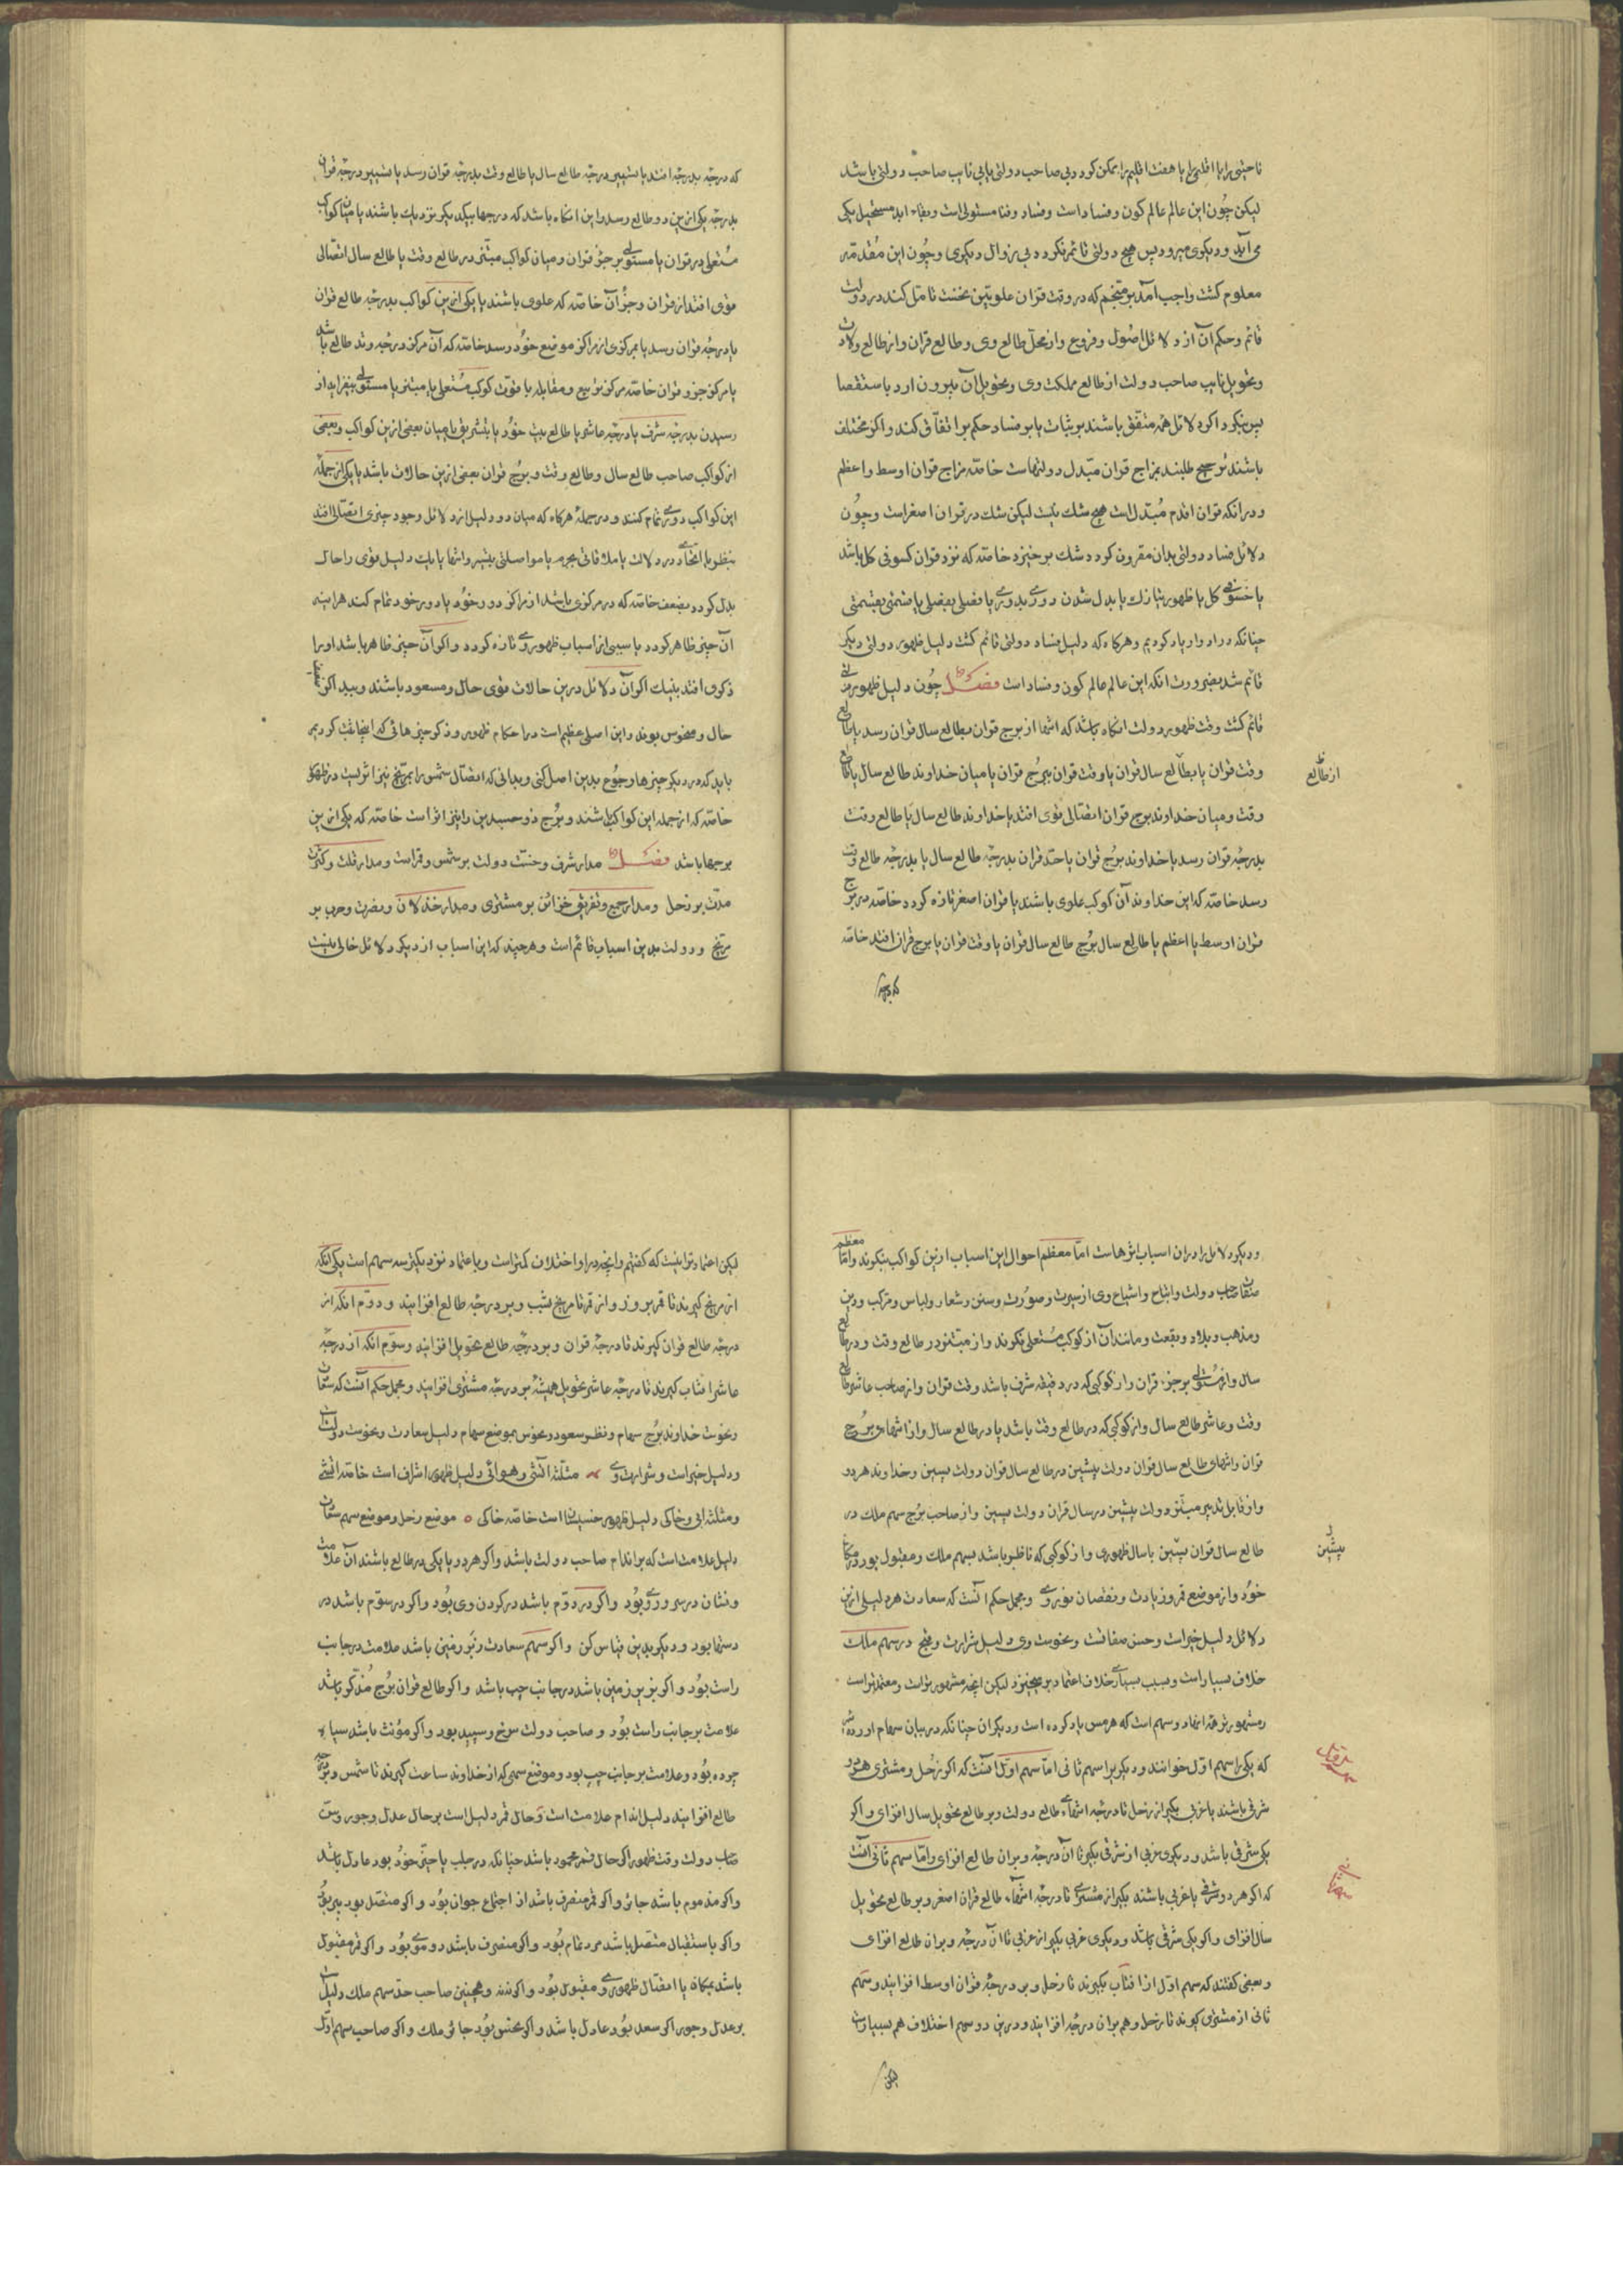 ناحیتی را یا اقلیمی را یا هفت اقلیم را ممکن کردد بی صاحب دولتی یا بی نایب صاحب دولتی باشد
لیکن چون این عالم عالم کون و فساد است و فساد و فنا مستولی است و بقاء ابد مستحیل یکی
می آید و دیکری میرود پس هیچ دولتی قائم نکردد بی زوال دیکری و چون این مقدمه
معلوم کشت واجب آمد بر منجم که در وقت قران علویین نخست تامل کند در دولت
قائم و حکم آن از دلائل اصول و فروع و از محل طالع وی و طالع قران و از طالع ولادت
و تحویل نایب صاحب دولت از طالع مملکت وی و تحویل آن بیرون ارد باستقصا
پس بنکرد اکر دلائل همه متفق باشند بر ثبات یا بر فساد حکم بر اتفاق کند و اکر مختلف
باشند ترجیح طلبند بمزاج قران مبدل دولتهاست خاصه مزاج قران اوسط و اعظم
و در انکه قران اقدم مبدل است هیچ شک نیست لیکن شک در قران اصغر است و چون
دلائل فساد دولتی بدان مقرون کردد شک برخیزد خاصه که نزد قران کسوفی کل باشد
یا خسوفی کل یا ظهور نیازک یا بدل شدن دوری بدوری یا فصلی بفصلی یا قسمتی بقسمتی
چنانکه در ادوار یاد کردیم و هرکاه که دلیل فساد دولتی قائم کشت دلیل ظهور دولتی دیکر
قائم شد بضرورت انکه این عالم عالم کون و فساد است فصل چون دلیل ظهور دولتی
قائم کشت وقت ظهور دولت انکاه باشد که انتها از برج قران بطالع سال قران رسد یا بطالع
وقت قران یا بطالع سال قران یا وقت قران ببرج قران یا میان خداوند طالع سال یا طالع
از طالع
وقت و میان خداوند برج قران اتصالی قوی افتد یا خداوند طالع سال یا طالع وقت
بدرجه قران رسد یا خداوند برج قران یا حد قران بدرجه طالع سال یا بدرجه طالع وقت
رسد خاصه که این خداوند آن کوکب علوی باشند یا قران اصغر تازه کردد خاصه در برج
قران اوسط یا اعظم یا طالع سال برج طالع سال قران یا وقت قران یا برج قران افتد خاصه
که درجه
که درجه بدرجه افتد یا تسییر درجه طالع سال یا طالع وقت بدرجه قران رسد یا تسییر درجه قران
بدرجه یکی ازین دو طالع رسد و این انکاه باشد که درجها بیکدیکر نزدیک باشند یا میان کواکب
مستعلی در قران یا مستولی بر جزو قران و میان کواکب مبتز در طالع وقت یا طالع سال اتصالی
قوی افتد از قران و جزو آن خاصه که علوی باشند یا یکی ازین کواکب بدرجه طالع قران
یا درجه قران رسد یا بمرکزی از مراکز موضع خود رسد خاصه که آن مرکز درجه وتد طالع باشد
یا مرکز جزو قران خاصه مرکز تربیع و مقابله یا قوت کوکب مستعلی یا مبتز یا مستولی بیفزاید از
رسیدن بدرجه شرف یا درجه عاشر یا طالع بیت خود یا بتشریق یا میان بعضی ازین کواکب و بعضی
از کواکب صاحب طالع سال و طالع وقت و برج قران بعضی ازین حالات باشد یا یکی از جمله
این کواکب دوری تمام کنند و در جمله هرکاه که میان دو دلیل از دلائل وجود چیزی اتصالی افتد
بنظر یا اتحادی در دلالت یا ملاقاتی بجرم یا مواصلتی بتسییر و انتها یا بیک دلیل قوی را حال
بدل کردد بضعف خاصه که در مرکزی باشد از مراکز دور خود یا دور خود تمام کند هراینه
آن چیز ظاهر کردد یا سببی از اسباب ظهوری تازه کردد و اکر آن چیز ظاهر باشد او را
ذکری افتد بنیک اکر آن دلائل درین حالات قوی حال و مسعود باشند و ببد اکر
حال و منحوس بوند و این اصلی عظیم است در احکام ظهور و ذکر چیزهائی که اینجا ثبت کردیم
باید که در دیکر چیزها رجوع بدین اصل کنی و بدانی که اتصال شمس را بمریخ نیز اثریست در ظهور
خاصه که از جمله این کواکب باشند و برج ذوجسدین را نیز اثر است خاصه که یکی ازین
برجها باشد فصل مدار شرف و حسب دولت بر شمس و قمر است و مدار قلت و کثرت
مدت بر زحل و مدار جمع و تفریق خزائن بر مشتری و مدار خذلان و نصرت و حرب بر
مریخ و دولت بدین اسباب قائم است و هرچند که این اسباب از دیکر دلائل خالی نیست
و دیکر دلائل را در ان اسباب اثرهاست اما معظم احوال این اسباب ازین کواکب بنکرند و اما
معظم
صفات صاحب دولت و اتباع و اشیاع وی از سیرت و صورت و سنن و شعار و لباس و مرکب و دین
و مذهب و بلاد و بقعت و مانند آن از کوکب مستعلی نکرند و از مبتز در طالع وقت و در طالع
سال و از مستولی بر جزء قران و از کوکبی که در دقیقه شرف باشد وقت قران و از صاحب عاشر طالع
وقت و عاشر طالع سال و از کوکبی که در طالع وقت باشد یا در طالع سال و از انتهای برج
قران و انتهای طالع سال قران دولت پیشین در طالع سال قران دولت پسین و خداوند هر دو
و از قابل تدبیر مبتز دولت پیشین در سال قران دولت پسین و از صاحب برج سهم ملک در
طالع سال قران پسین یا سال ظهوری و از کوکبی که ناظر باشد بسهم ملک و مقبول بود در مکان
پیشین
خود و از موضع قمر و زیادت و نقصان نور وی و مجمل حکم آنست که سعادت هر دلیلی ازین
دلائل دلیل خیر است و حسن صفاتست و نحوست وی دلیل شرارت و قبح در سهم ملک
خلاف بسیار است و بسبب بسیاری خلاف اعتماد برمیخیزد لیکن انچه مشهورتر است و معتمدتر است
و مشهورتر همه انها دو سهم است که هرمس یاد کرده است و دیکران چنانکه در بیان سهام اورده شد
که یکی را سهم اول خوانند و دیکر را سهم ثانی اما سهم اول آنست که اکر زحل و مشتری هر دو
شرقی باشند یا غربی بکیر از زحل تا درجه انتهاء طالع دولت و بر طالع تحویل سال افزای و اکر
یکی شرقی باشد و دیکری غربی از شرقی بکیر تا آن درجه و بر ان طالع افزای و اما سهم ثانی آنست
که اکر هر دو شرقی یا غربی باشند بکیر از مشتری تا درجه انتهاء طالع قران اصغر و بر طالع تحویل
سال افزای و اکر یکی شرقی باشد و دیکری غربی بکیر از غربی تا ان درجه و بر ان طالع افزای
و بعضی کفتند که سهم اول از افتاب بکیرند تا زحل و بر درجه قران اوسط افزایند و سهم
ثانی از مشتری کیرند تا زحل و هم بر ان درجه افزایند و درین دو سهم اختلاف هم بسیار است
لیکن
لیکن اعتماد برانست که کفتیم و انچه در او اختلاف کمتر است و باعتماد نزدیکتر سه سهم است یکی انکه
از مریخ کیرند تا قمر بروز و از قمر تا مریخ بشب و بر درجه طالع افزایند و دوم انکه از
درجه طالع قران کیرند تا درجه قران و بر درجه طالع تحویل افزایند و سوم انکه از درجه
عاشر افتاب کیرند تا درجه عاشر تحویل همیشه بر درجه مشتری افزایند و مجمل حکم آنست که سعادت
و نحوست خداوند برج سهام و نظر سعود و نحوس بموضع سهام دلیل سعادت و نحوست دولت است
و دلیل خیر است و شرارت وی مثلثه اتشی و هوائی دلیل ظهور اشراف است خاصه اتشی
و مثلثه ابی و خاکی دلیل ظهور خسیسان است خاصه خاکی ه موضع زحل و موضع سهم سعادت
دلیل علامت است که بر اندام صاحب دولت باشد و اکر هر دو یا یکی در طالع باشند آن علامت
و نشان در سر و روی بود و اکر در دوم باشد در کردن وی بود و اکر در سوم باشد در
دستها بود و دیکر بدین قیاس کن و اکر سهم سعادت زبر زمین باشد علامت در جانب
راست بود و اکر زیر زمین باشد در جانب چپ باشد و اکر طالع قران برج مذکر باشد
علامت بر جانب راست بود و صاحب دولت سرخ و سپید بود و اکر مؤنث باشد سیاه
چرده بود و علامت بر جانب چپ بود و موضع سهمی که از خداوند ساعت کیرند تا شمس و بر درجه
طالع افزایند دلیل اندام علامت است و حال قمر دلیل است بر حال عدل و جور و سن
صاحب دولت وقت ظهور اکر حال قمر محمود باشد چنانکه در حلب یا حیز خود بود عادل باشد
و اکر مذموم باشد جائر و اکر قمر منصرف باشد از اجتماع جوان بود و اکر متصل بود پیر بود
و اکر باستقبال متصل باشد مرد تمام بود و اکر منصرف باشد دوموی بود و اکر قمر مقبول
باشد بمکان یا اتصال ظهوری و مقبول بود و اکر نه نه و همچنین صاحب حد سهم ملک دلیل است
بر عدل و جور اکر سعد بود عادل باشد و اکر نحس بود جائر ملک و اکر صاحب سهم اول